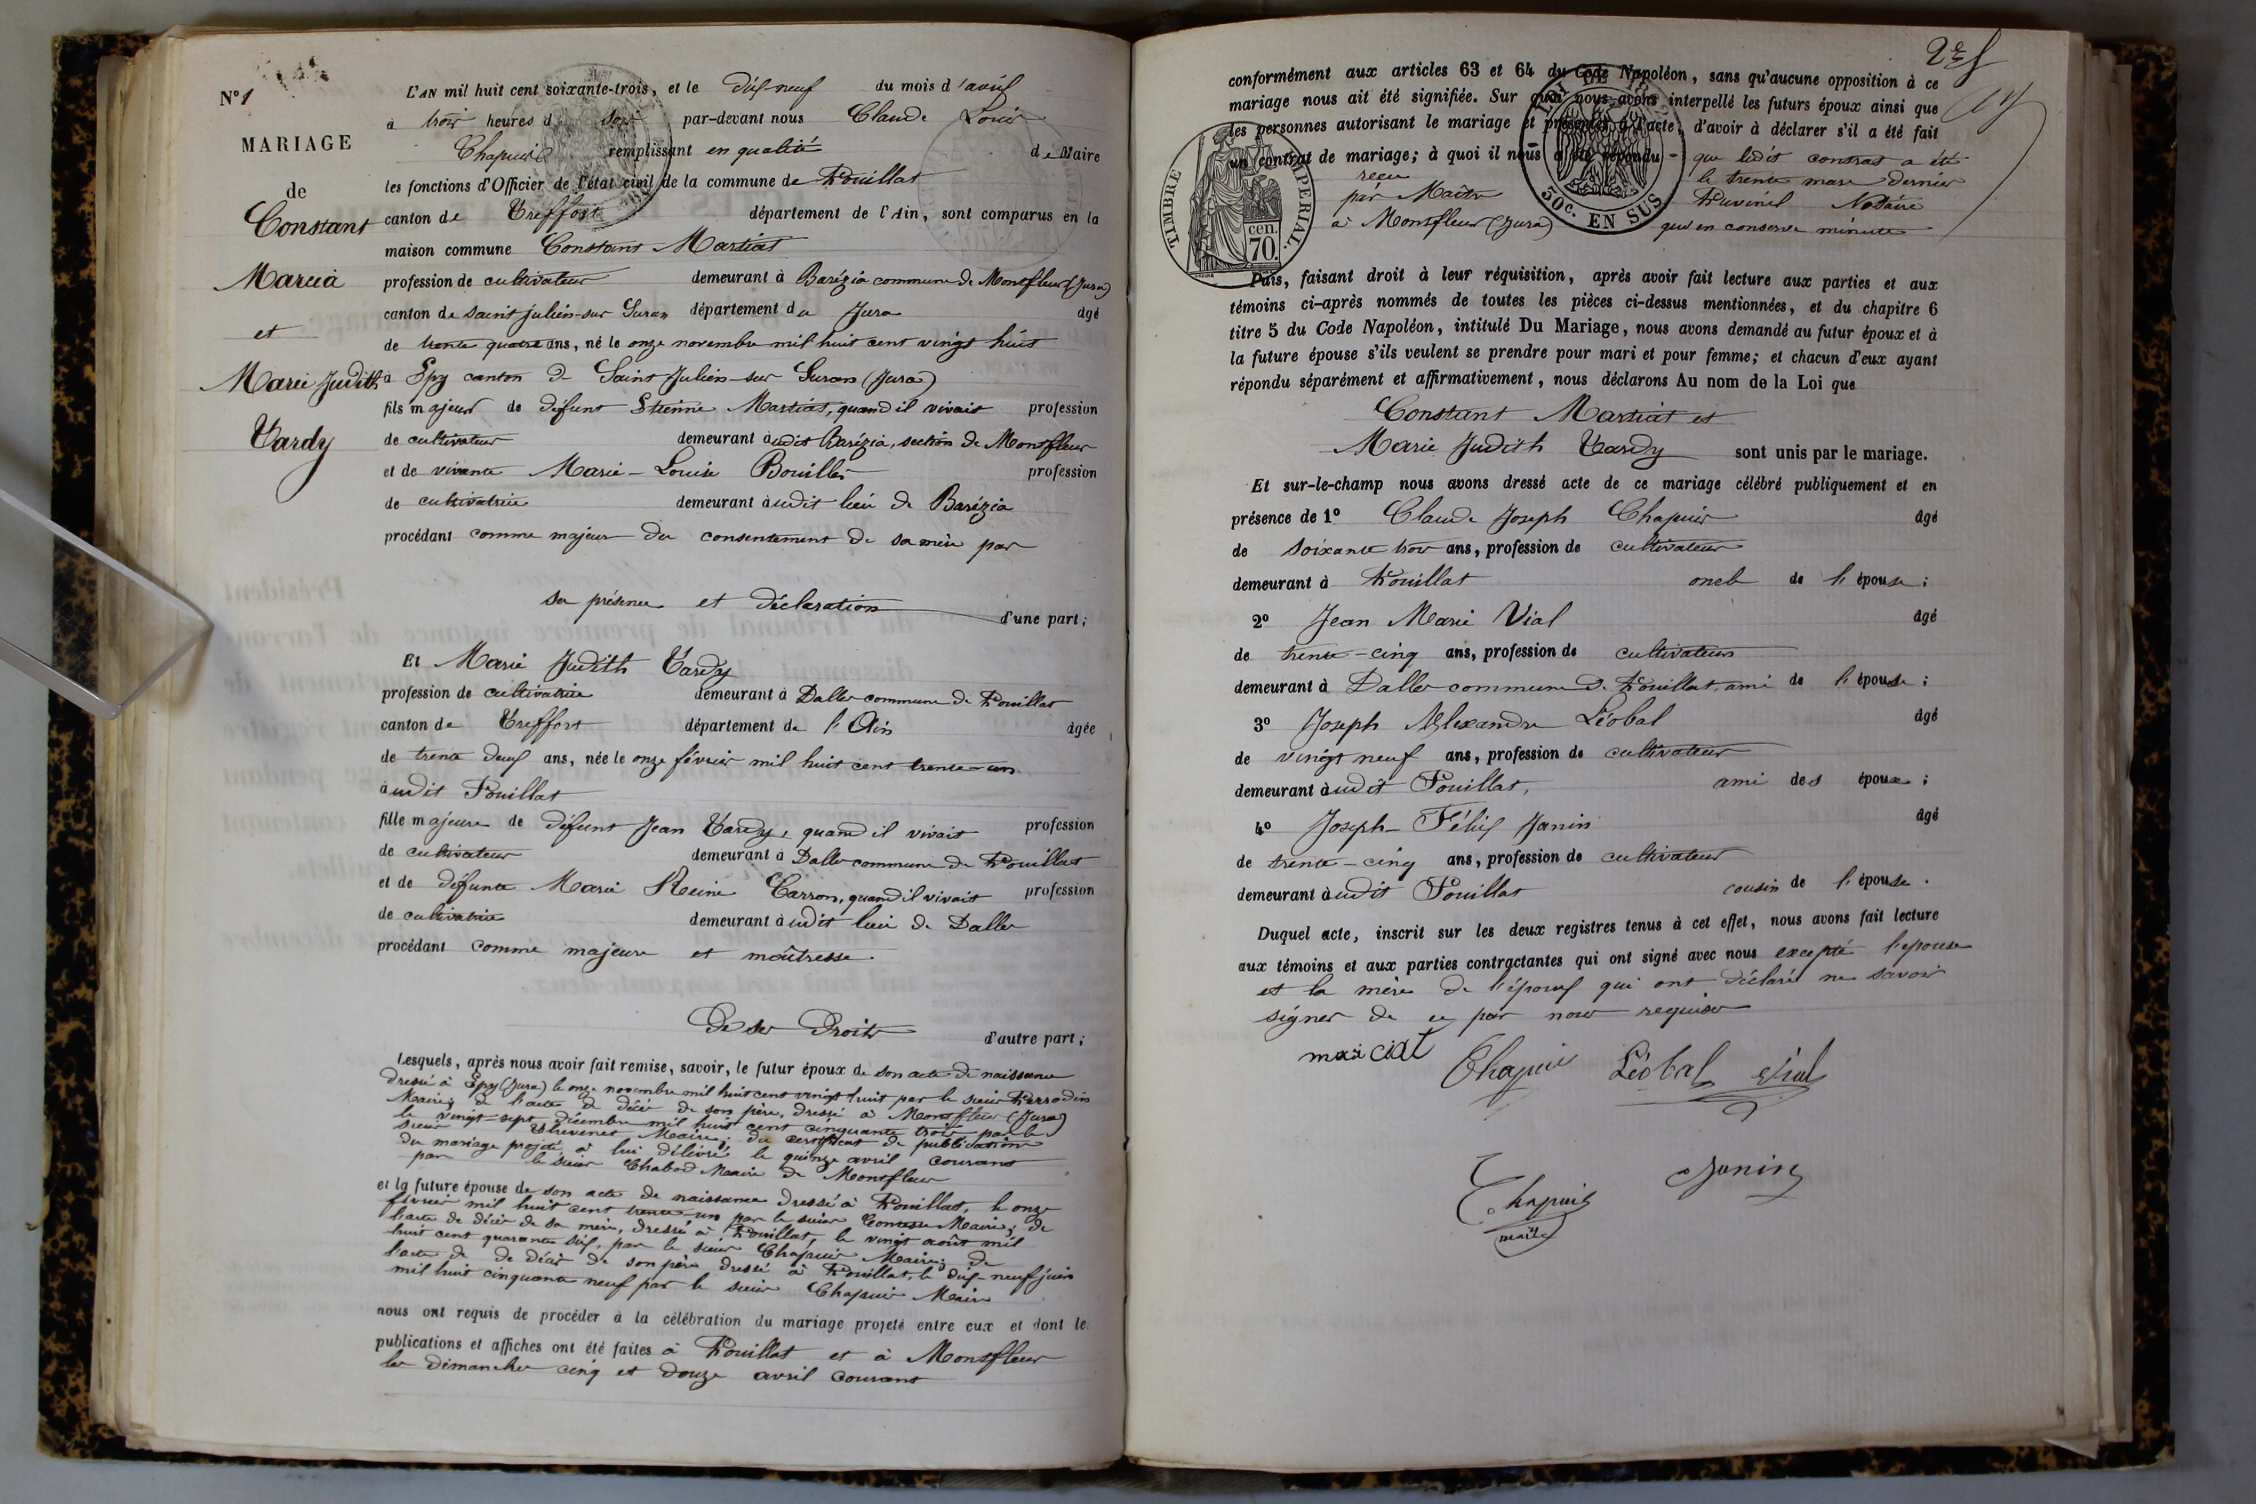 N° 1
MARIAGE
de
Constant
Marcia
et
Marie Judith
Tardy
L'AN mil huit cent soixante-trois, et le dix-neuf du mois d'avril
à trois heures d soir par-devant nous Claude Louis
Chapuis remplissant en qualité de Maire
les fonctions d'Officier de l'état civil de la commune de Pouillat
canton de Treffort département de l'Ain, sont comparus en la
maison commune Constant Martiat
profession de cultivateur demeurant à Barézia commune de Montfleur (Jura)
canton de saint julien-sur Suran département du Jura âgé
de trente quatre ans, né le onze novembre mil huit cent vingt huit
à Epy canton de Saint Julien-sur Suran (Jura)
fils majeur de défunt Etienne Martiat, quand il vivait profession
de cultivateur demeurant audit Barézia, section de Montfleur
et de vivante Marie-Louise Bouiller profession
de cultivatrice demeurant audit lieu de Barézia
procédant comme majeur du consentement de sa mère par
sa présence et déclaration d'une part;
Et Marie Judith Tardy
profession de cultivatrice demeurant à Dalles commune de Pouillat
canton de Treffort département de l'Ain âgée
de trente deux ans, née le onze février mil huit cent trente-un
audit Pouillat
fille majeure de défunt Jean Tardy, quand il vivait profession
de cultivateur demeurant à Dalles commune de Pouillat
et de défunte Marie Reine Carron, quand il vivait profession
de cultivatrice demeurant audit lieu de Dalles
procédant comme majeure et maîtresse
de ses Droits d'autre part;
Lesquels, après nous avoir fait remise, savoir, le futur époux de son acte de naissance
dressé à Epy (Jura) le onze novembre mil huit cent vingt huit par le sieur Perrodin
Maire; de l'acte de décès de son père, dressé à Montfleur (Jura)
le vingt-sept décembre mil huit cent cinquante trois par le
sieur Maire; du certificat de publication
du mariage projeté à lui délivré le quinze avril courant
par le sieur Chabod Maire de Montfleur
et la future épouse de son acte de naissance dressé à Pouillat, le onze
février mil huit cent trente-un par le sieur Comte Maire; de
l'acte de décès de sa mère, dressé à Pouillat, le vingt août mil
huit cent quarante six, par le sieur Chapuis Maire; de
l'acte de de décès de son père dressé à Pouillat, le dix-neuf juin
mil huit cinquante neuf par le sieur Chapuis Maire
nous ont requis de procéder à la célébration du mariage projeté entre eux et dont les
publications et affiches ont été faites à Pouillat et à Montfleur
les dimanches cinq et douze avril courant
conformément aux articles 63 et 64 du Code Napoléon, sans qu'aucune opposition à ce
mariage nous ait été signifiée. Sur quoi nous avons interpellé les futurs époux ainsi que
les personnes autorisant le mariage et présentes à l'acte, d'avoir à déclarer s'il a été fait
un contrat de mariage; à quoi il nous a été répondu - que ledit contrat a été
reçu le trente mars dernier
par Maître Notaire
à Montfleur (Jura) qui en conserve minute
TIMBRE IMPERIAL.
cen.
70.
50c. EN SUS
Puis, faisant droit à leur réquisition, après avoir fait lecture aux parties et aux
témoins ci-après nommés de toutes les pièces ci-dessus mentionnées, et du chapitre 6
titre 5 du Code Napoléon, intitulé Du Mariage, nous avons demandé au futur époux et à
la future épouse s'ils veulent se prendre pour mari et pour femme; et chacun d'eux ayant
répondu séparément et affirmativement, nous déclarons Au nom de la Loi que
Constant Martiat et
Marie Judith Tardy sont unis par le mariage.
Et sur-le-champ nous avons dressé acte de ce mariage célébré publiquement et en
présence de 1° Claude Joseph Chapuis âgé
de soixante trois ans, profession de cultivateur
demeurant à Pouillat oncle de l'épouse;
2° Jean Marie Vial âgé
de trente-cinq ans, profession de cultivateur
demeurant à Dalles commune de Pouillat, ami de l'épouse;
3° Joseph Alexandre Léobal âgé
de vingt neuf ans, profession de cultivateur
demeurant audit Pouillat, ami des époux;
4° Joseph-Félix Janin âgé
de trente-cinq ans, profession de cultivateur
demeurant audit Pouillat cousin de l'épouse.
Duquel acte, inscrit sur les deux registres tenus à cet effet, nous avons fait lecture
aux témoins et aux parties contractantes qui ont signé avec nous excepté l'épouse
et la mère de l'époux qui ont déclaré ne savoir
signer de ce par nous requises
marciat Chapuis Léobal Vial
Janin
Chapuis
maire